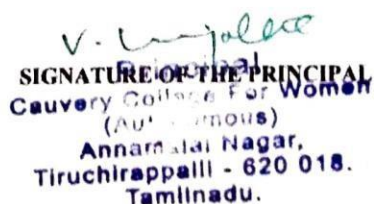 Principal
SIGNATURE OF THE PRINCIPAL
Cauvery College For Women
(Autonomous)
Annamalai Nagar,
Tiruchirappalli - 620 018.
Tamilnadu.